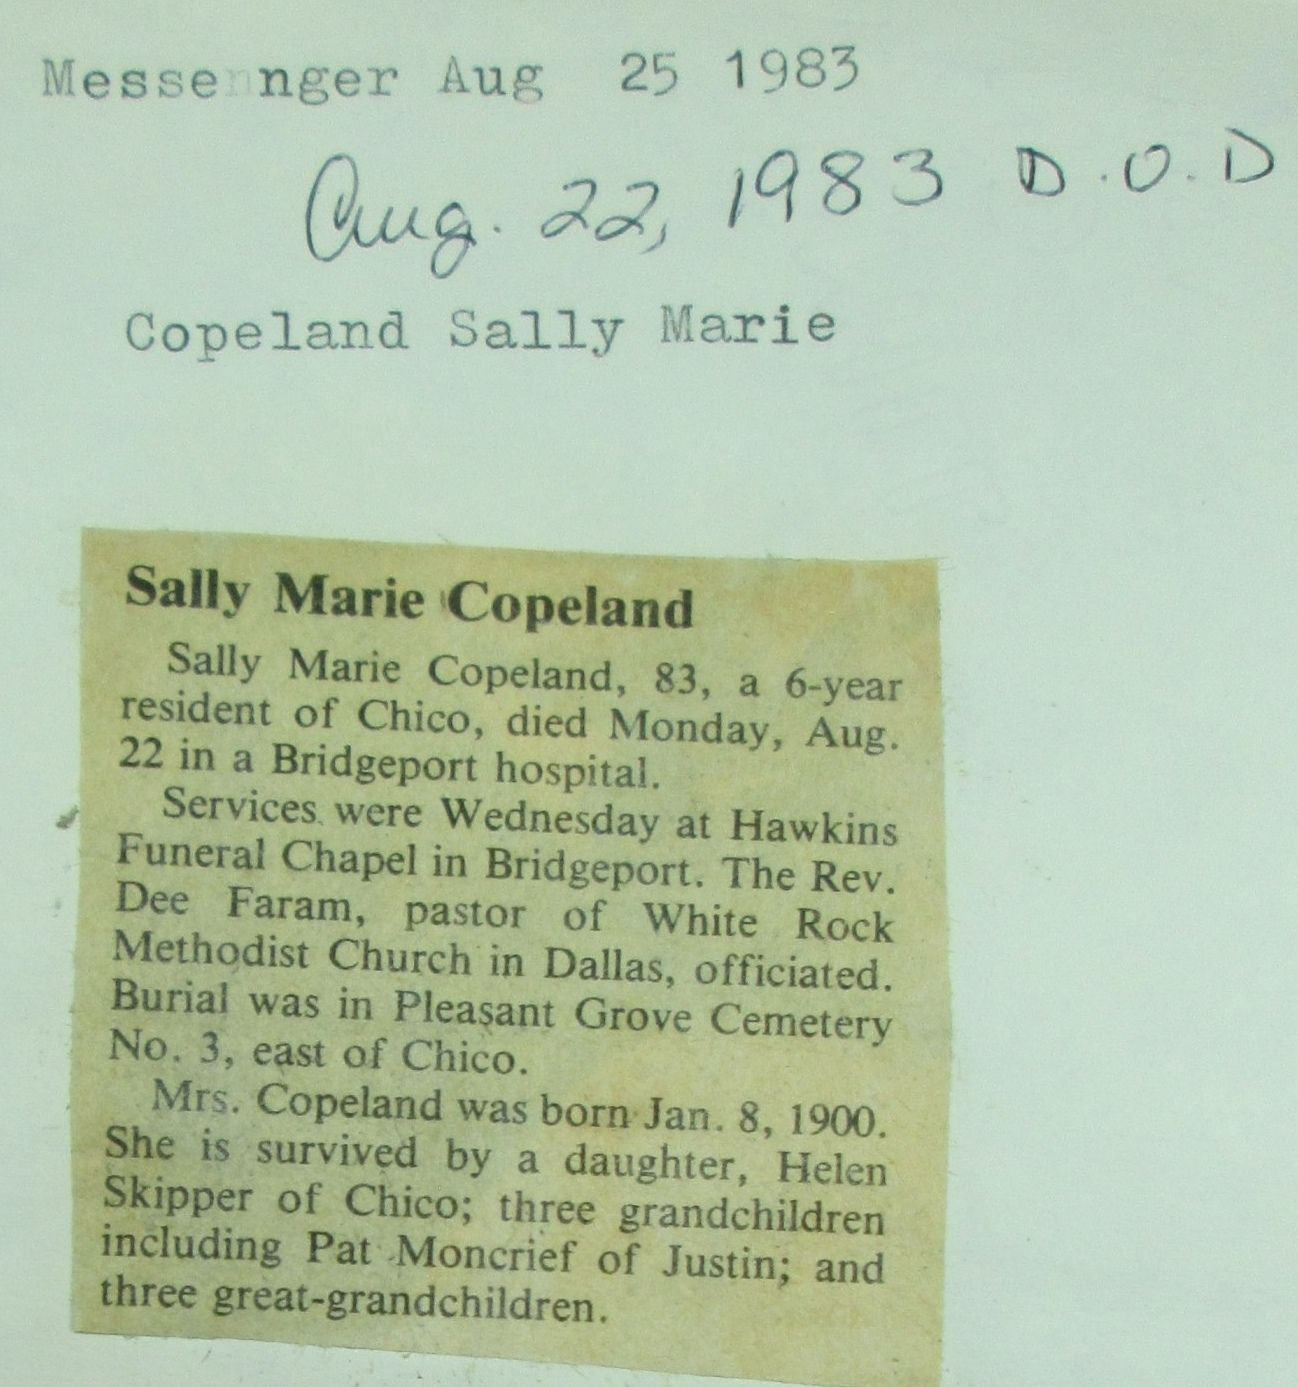 Messennger Aug 25 1983
Aug. 22, 1983 D.O.D
Copeland Sally Marie
Sally Marie Copeland
Sally Marie Copeland, 83, a 6-year
resident of Chico, died Monday, Aug.
22 in a Bridgeport hospital.
Services were Wednesday at Hawkins
Funeral Chapel in Bridgeport. The Rev.
Dee Faram, pastor of White Rock
Methodist Church in Dallas, officiated.
Burial was in Pleasant Grove Cemetery
No. 3, east of Chico.
Mrs. Copeland was born Jan. 8, 1900.
She is survived by a daughter, Helen
Skipper of Chico; three grandchildren
including Pat Moncrief of Justin; and
three great-grandchildren.